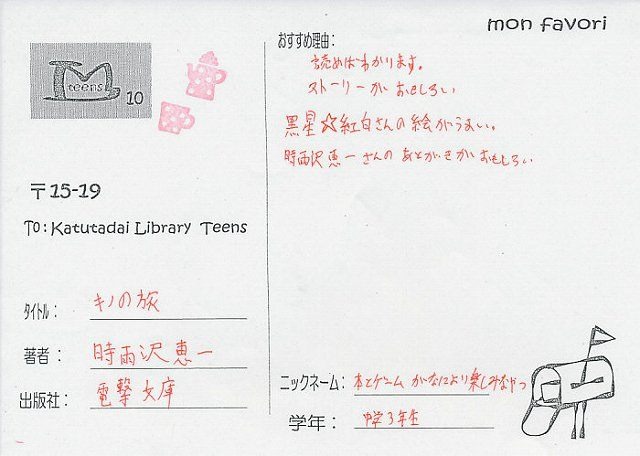 mon favori
teens
10
〒15-19
To: Katutadai Library Teens
タイトル: キノの旅
著者: 時雨沢恵一
出版社: 電撃文庫
おすすめ理由:
読めばわかります。
ストーリーがおもしろい
黒星☆紅白さんの絵がうまい。
時雨沢恵一さんのあとがきがおもしろい
ニックネーム: 本とゲームがなにより楽しみなやつ
学年: 中学3年生